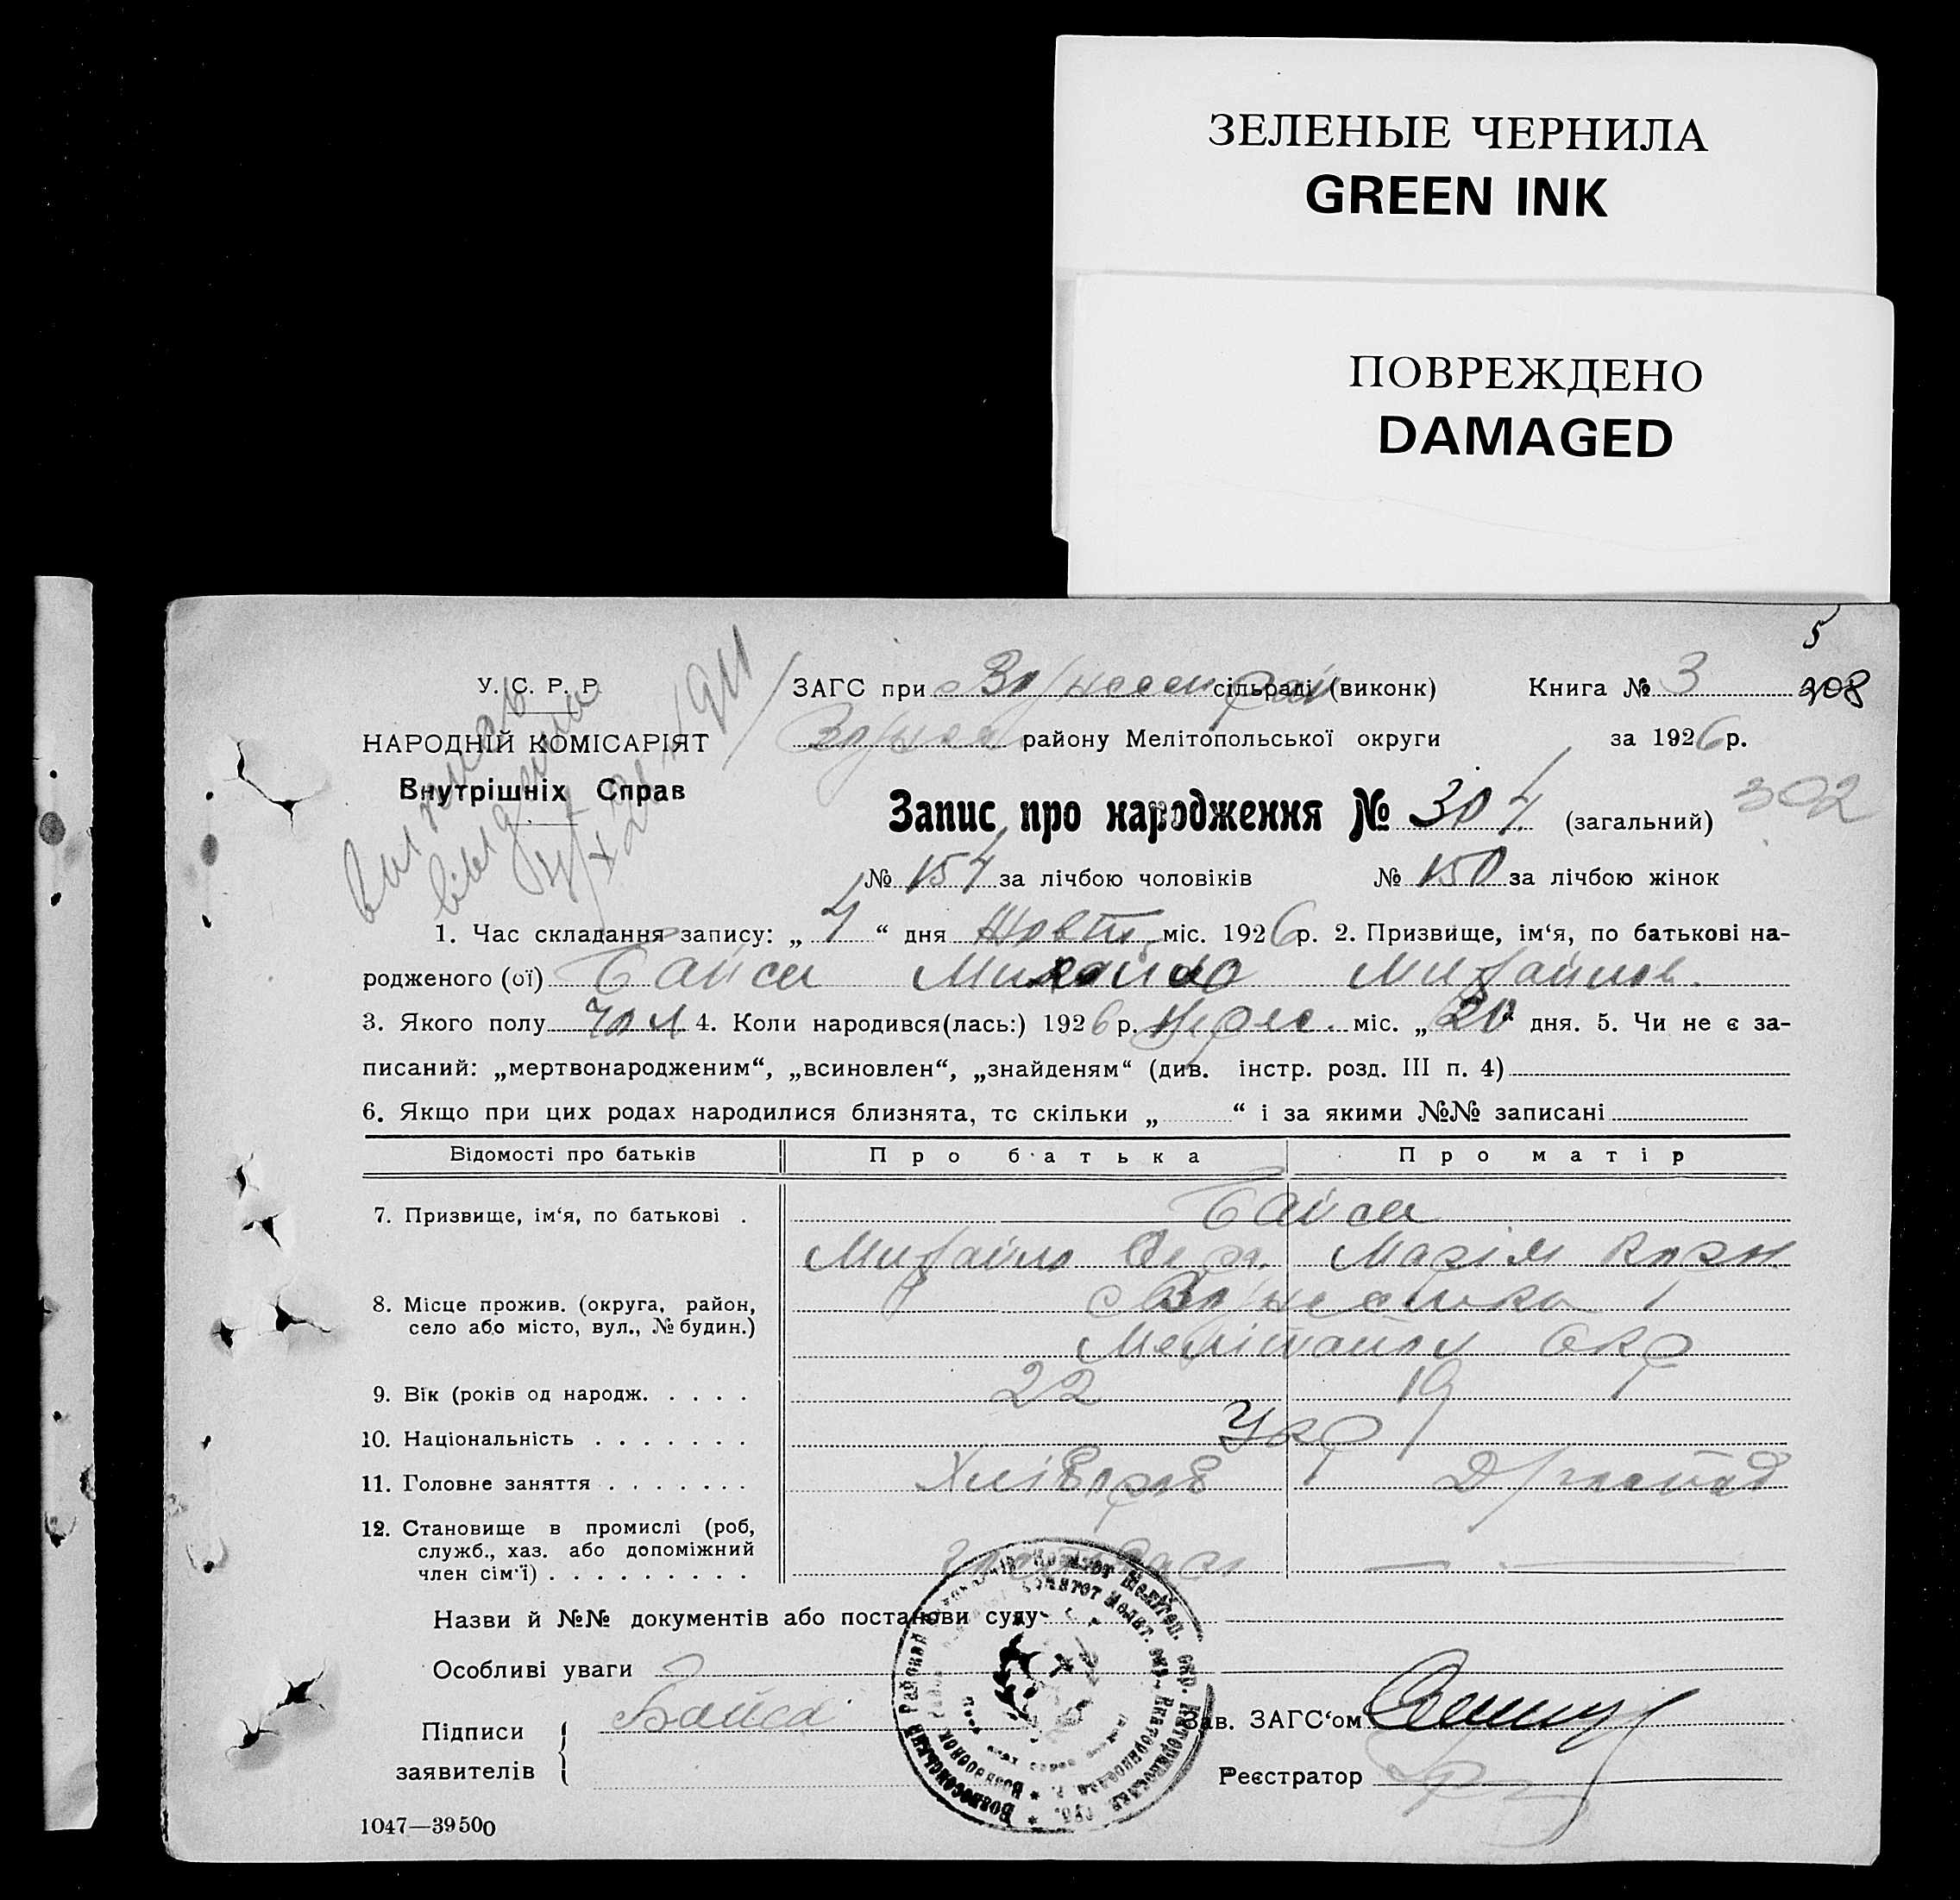 ЗЕЛЕНЫЕ ЧЕРНИЛА
GREEN INK
ПОВРЕЖДЕНО
DAMAGED
5
У. С. Р. Р.
НАРОДНІЙ КОМІСАРІЯТ
Внутрішніх Справ
ЗАГС при сільраді (виконк) Книга № 3 308
району Мелітопольської округи за 1926 р.
Запис про народження № 304 (загальний) 302
№ 154 за лічбою чоловіків № 150 за лічбою жінок
1. Час складання запису: „ 4 “ дня Жовт. міс. 1926 р. 2. Призвище, ім‘я, по батькові на-
родженого (ої) Байса Михайло Михайлов.
3. Якого полу чол 4. Коли народився(лась:) 1926 р. Верес. міс. „ 20 “ дня. 5. Чи не є за-
писаний: „мертвонародженим“, „всиновлен“, „знайденям“ (див. інстр. розд. III п. 4)
6. Якщо при цих родах народилися близнята, то скільки „ “ і за якими №№ записані
Відомості про батьків Про батька Про матір
7. Призвище, ім‘я, по батькові . Байса
Михайло Марія Корн.
8. Місце прожив. (округа, район,
село або місто, вул., № будин.)
с Вознесенка
Мелітопол Окр
9. Вік (років од народж. . . . . 22 19
10. Національність . . . . . . . Укр
11. Головне заняття . . . . . . . Хлібороб
12. Становище в промислі (роб,
служб., хаз. або допоміжний
член сім‘ї) . . . . . . . . .
Назви й №№ документів або постанови суду
Особливі уваги
Підписи
заявителів
Байса
Зав. ЗАГС‘ом
Реєстратор
1047—39500